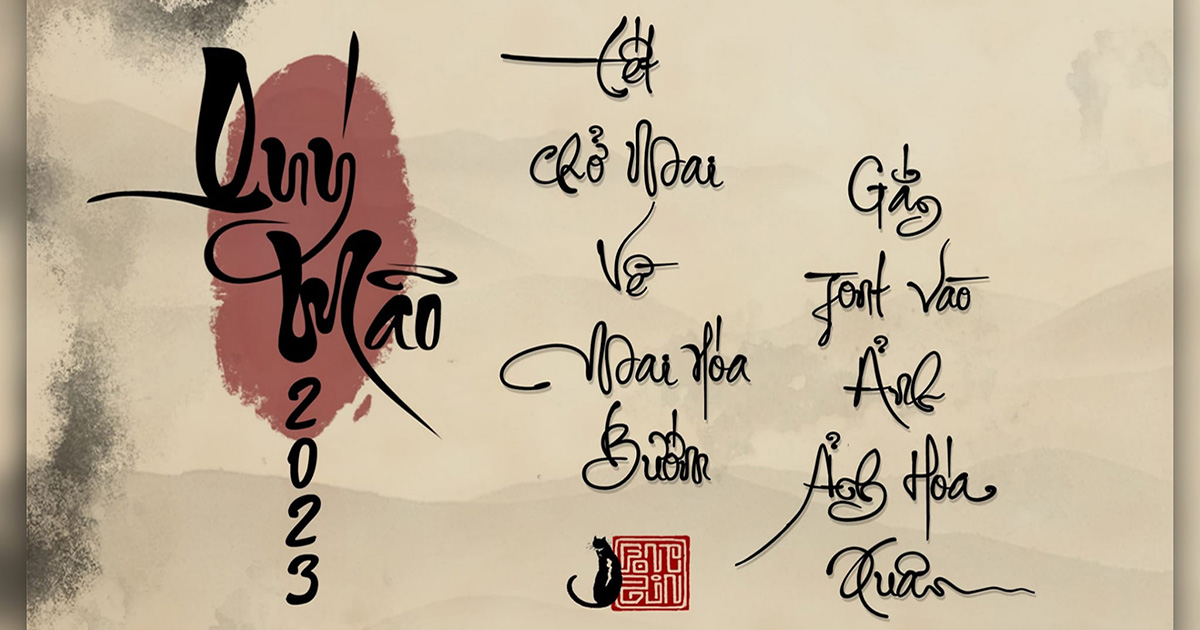 Quý
Mão
2
0
2
3
Tết
Chở Mai
Về
Mai Hóa
Bướm
Gắn
Font Vào
Ảnh
Ảnh Hóa
Xuân